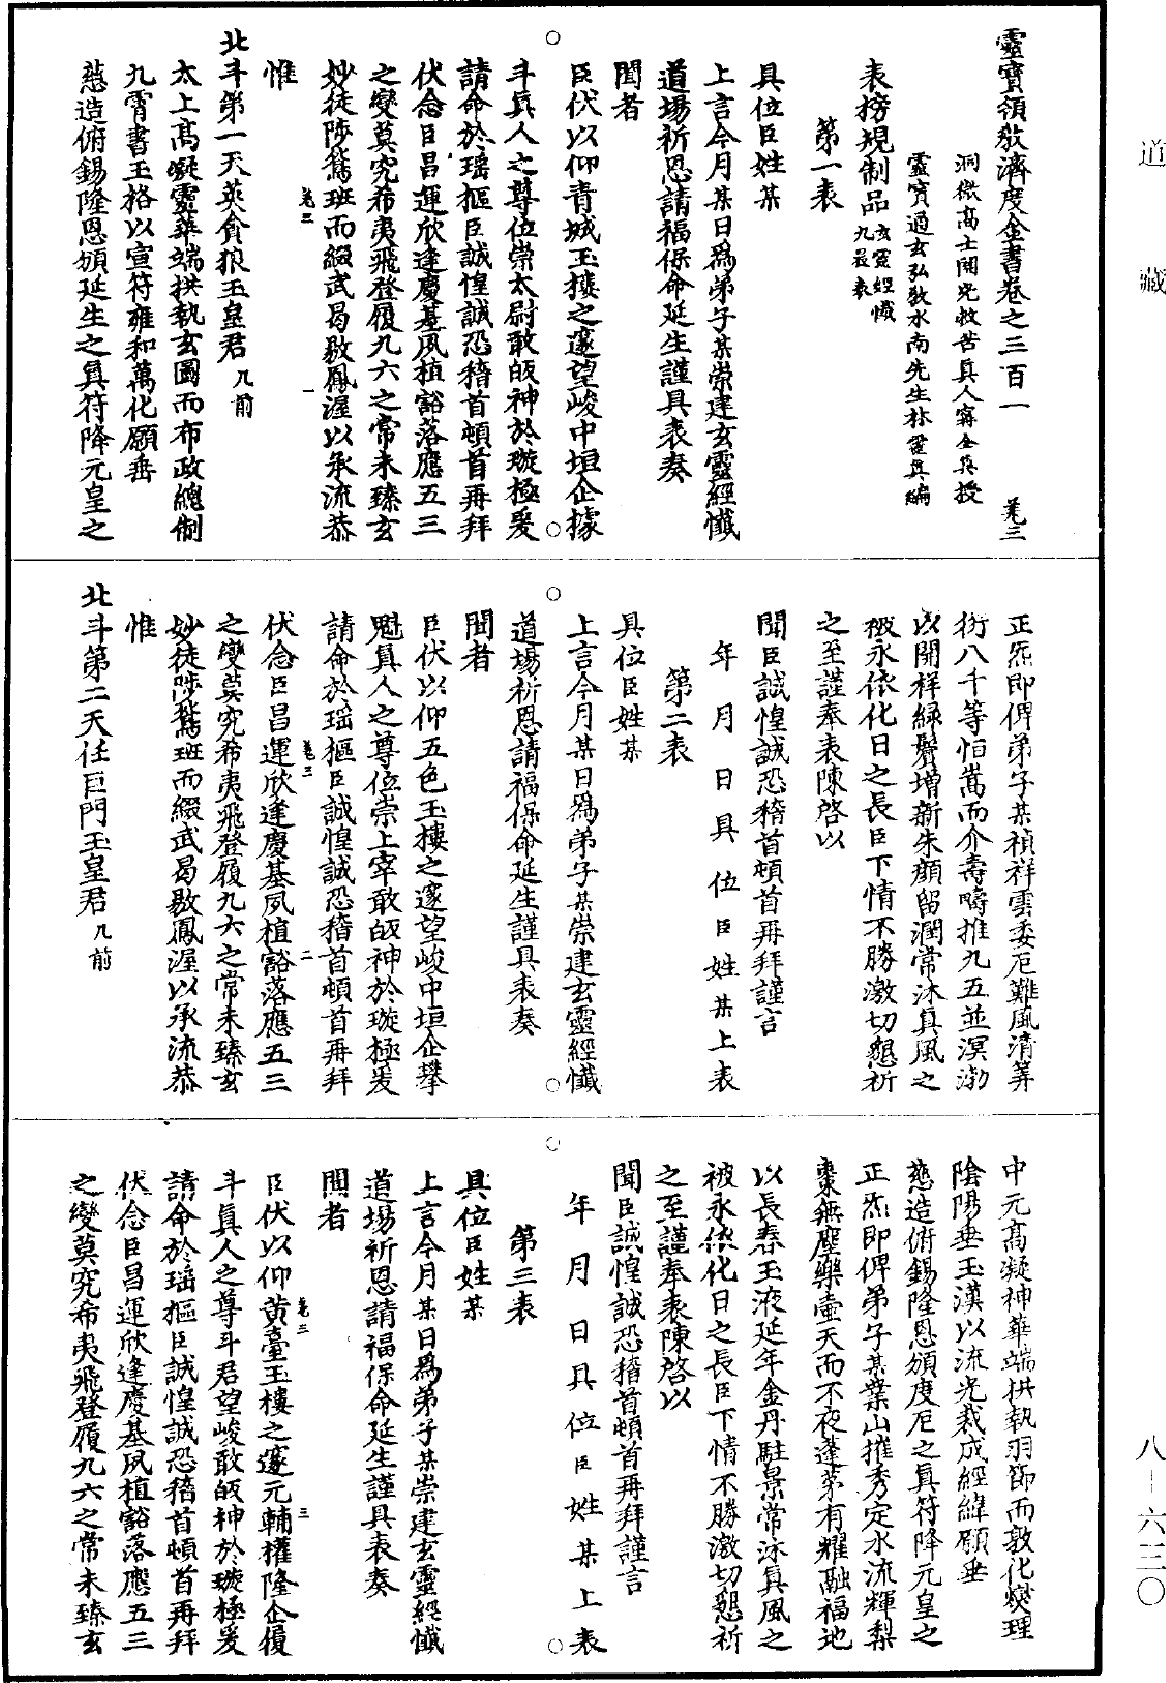 道藏
靈寶領教濟度金書卷之三百一
羌三
洞微高士開光救苦真人甯全真授
靈寶通玄弘教水南先生林靈真編
表榜規制品玄靈經懺九晨表
第一表
具位臣姓某
上言今月某日為弟子某崇建玄靈經懺
道場祈恩請福保命延生謹具表奏
聞者
臣伏以仰青城玉樓之邃望峻中垣企據
斗真人之尊位崇太尉敢皈神於璇極爰
請命於瑶樞臣誠惶誠恐稽首頓首再拜
伏念臣昌運欣逢慶基夙植豁落應五三
之變莫究希夷飛登履九六之常未臻玄
羌三
一
妙徒陟鵉班而綴武曷敭鳳渥以承流恭
惟
北斗第一天英貪狼玉皇君九前
太上高凝靈華端拱執玄圖而布政總制
九霄書玉格以宣符雍和萬化願垂
慈造俯錫隆恩頒延生之真符降元皇之
正炁即俾弟子某禎祥雲委厄難風清筭
衍八千等恒嵩而介壽疇推九五並溟渤
以開祥緑鬢增新朱顏留潤常沐真風之
被永依化日之長臣下情不勝激切懇祈
之至謹奉表陳啓以
聞臣誠惶誠恐稽首頓首再拜謹言
年月日具位臣姓某上表
第二表
具位臣姓某
上言今月某日為弟子某崇建玄靈經懺
道場祈恩請福保命延生謹具表奏
聞者
臣伏以仰五色玉樓之邃望峻中垣企攀
魁真人之尊位崇上宰敢皈神於璇極爰
請命於瑶樞臣誠惶誠恐稽首頓首再拜
羌三
二
伏念臣昌運欣逢慶基夙植豁落應五三
之變莫究希夷飛登履九六之常未臻玄
妙徒陟鵉班而綴武曷敭鳳渥以承流恭
惟
北斗第二天任巨門玉皇君九前
中元高凝神華端拱執羽節而敦化燮理
陰陽垂玉漢以流光裁成經緯願垂
慈造俯錫隆恩頒度厄之真符降元皇之
正炁即俾弟子某業山摧秀定水流輝梨
棗無塵藥壷天而不夜蓬茅有耀融福地
以長春玉液延年金丹駐景常泳真風之
被永依化日之長臣下情不勝激切懇祈
之至謹奉表陳啓以
聞臣誠惶誠恐稽首頓首再拜謹言
年月日具位臣姓某上表
第三表
具位臣姓某
上言今月某日為弟子某崇建玄靈經懺
道場祈恩請福保命延生謹具表奏
聞者
羌三
三
臣伏以仰黄臺玉樓之邃元輔權隆企復
斗真人之尊斗君望峻敢皈神於璇極爰
請命於瑶樞臣誠惶誠恐稽首頓首再拜
伏念臣昌運欣逢慶基夙植豁落應五三
之變莫究希夷飛登履九六之常未臻玄
八-六三〇